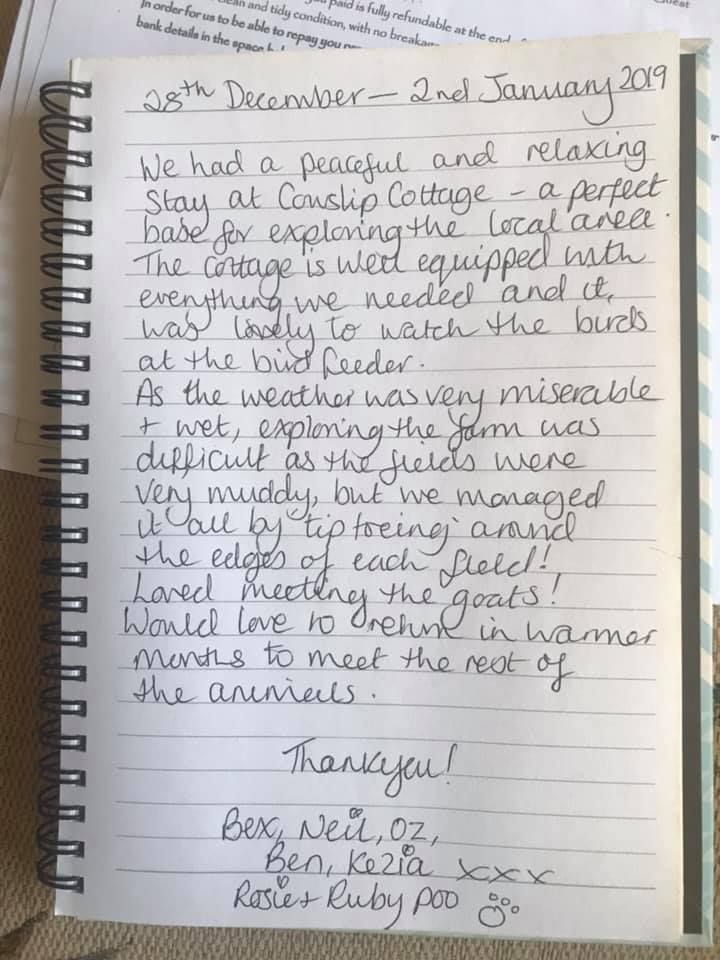 an and tidy condition, with no breakag
paid is fully refundable at the end
In order for us to be able to repay you
bank details in the space
28th December - 2nd January 2019
We had a peaceful and relaxing
stay at Cowslip Cottage - a perfect
base for exploring the local area.
The cottage is well equipped with
everything we needed and it,
was lovely to watch the birds
at the bird feeder.
As the weather was very miserable
+ wet, exploring the farm was
difficult as the fields were
very muddy, but we managed
it all by "tip toeing" around
the edges of each field!
Loved meeting the goats!
Would love to return in warmer
months to meet the rest of
the animals.
Thankyou!
Bex, Neil, Oz,
Ben, Kezia xxx
Rosie + Ruby poo